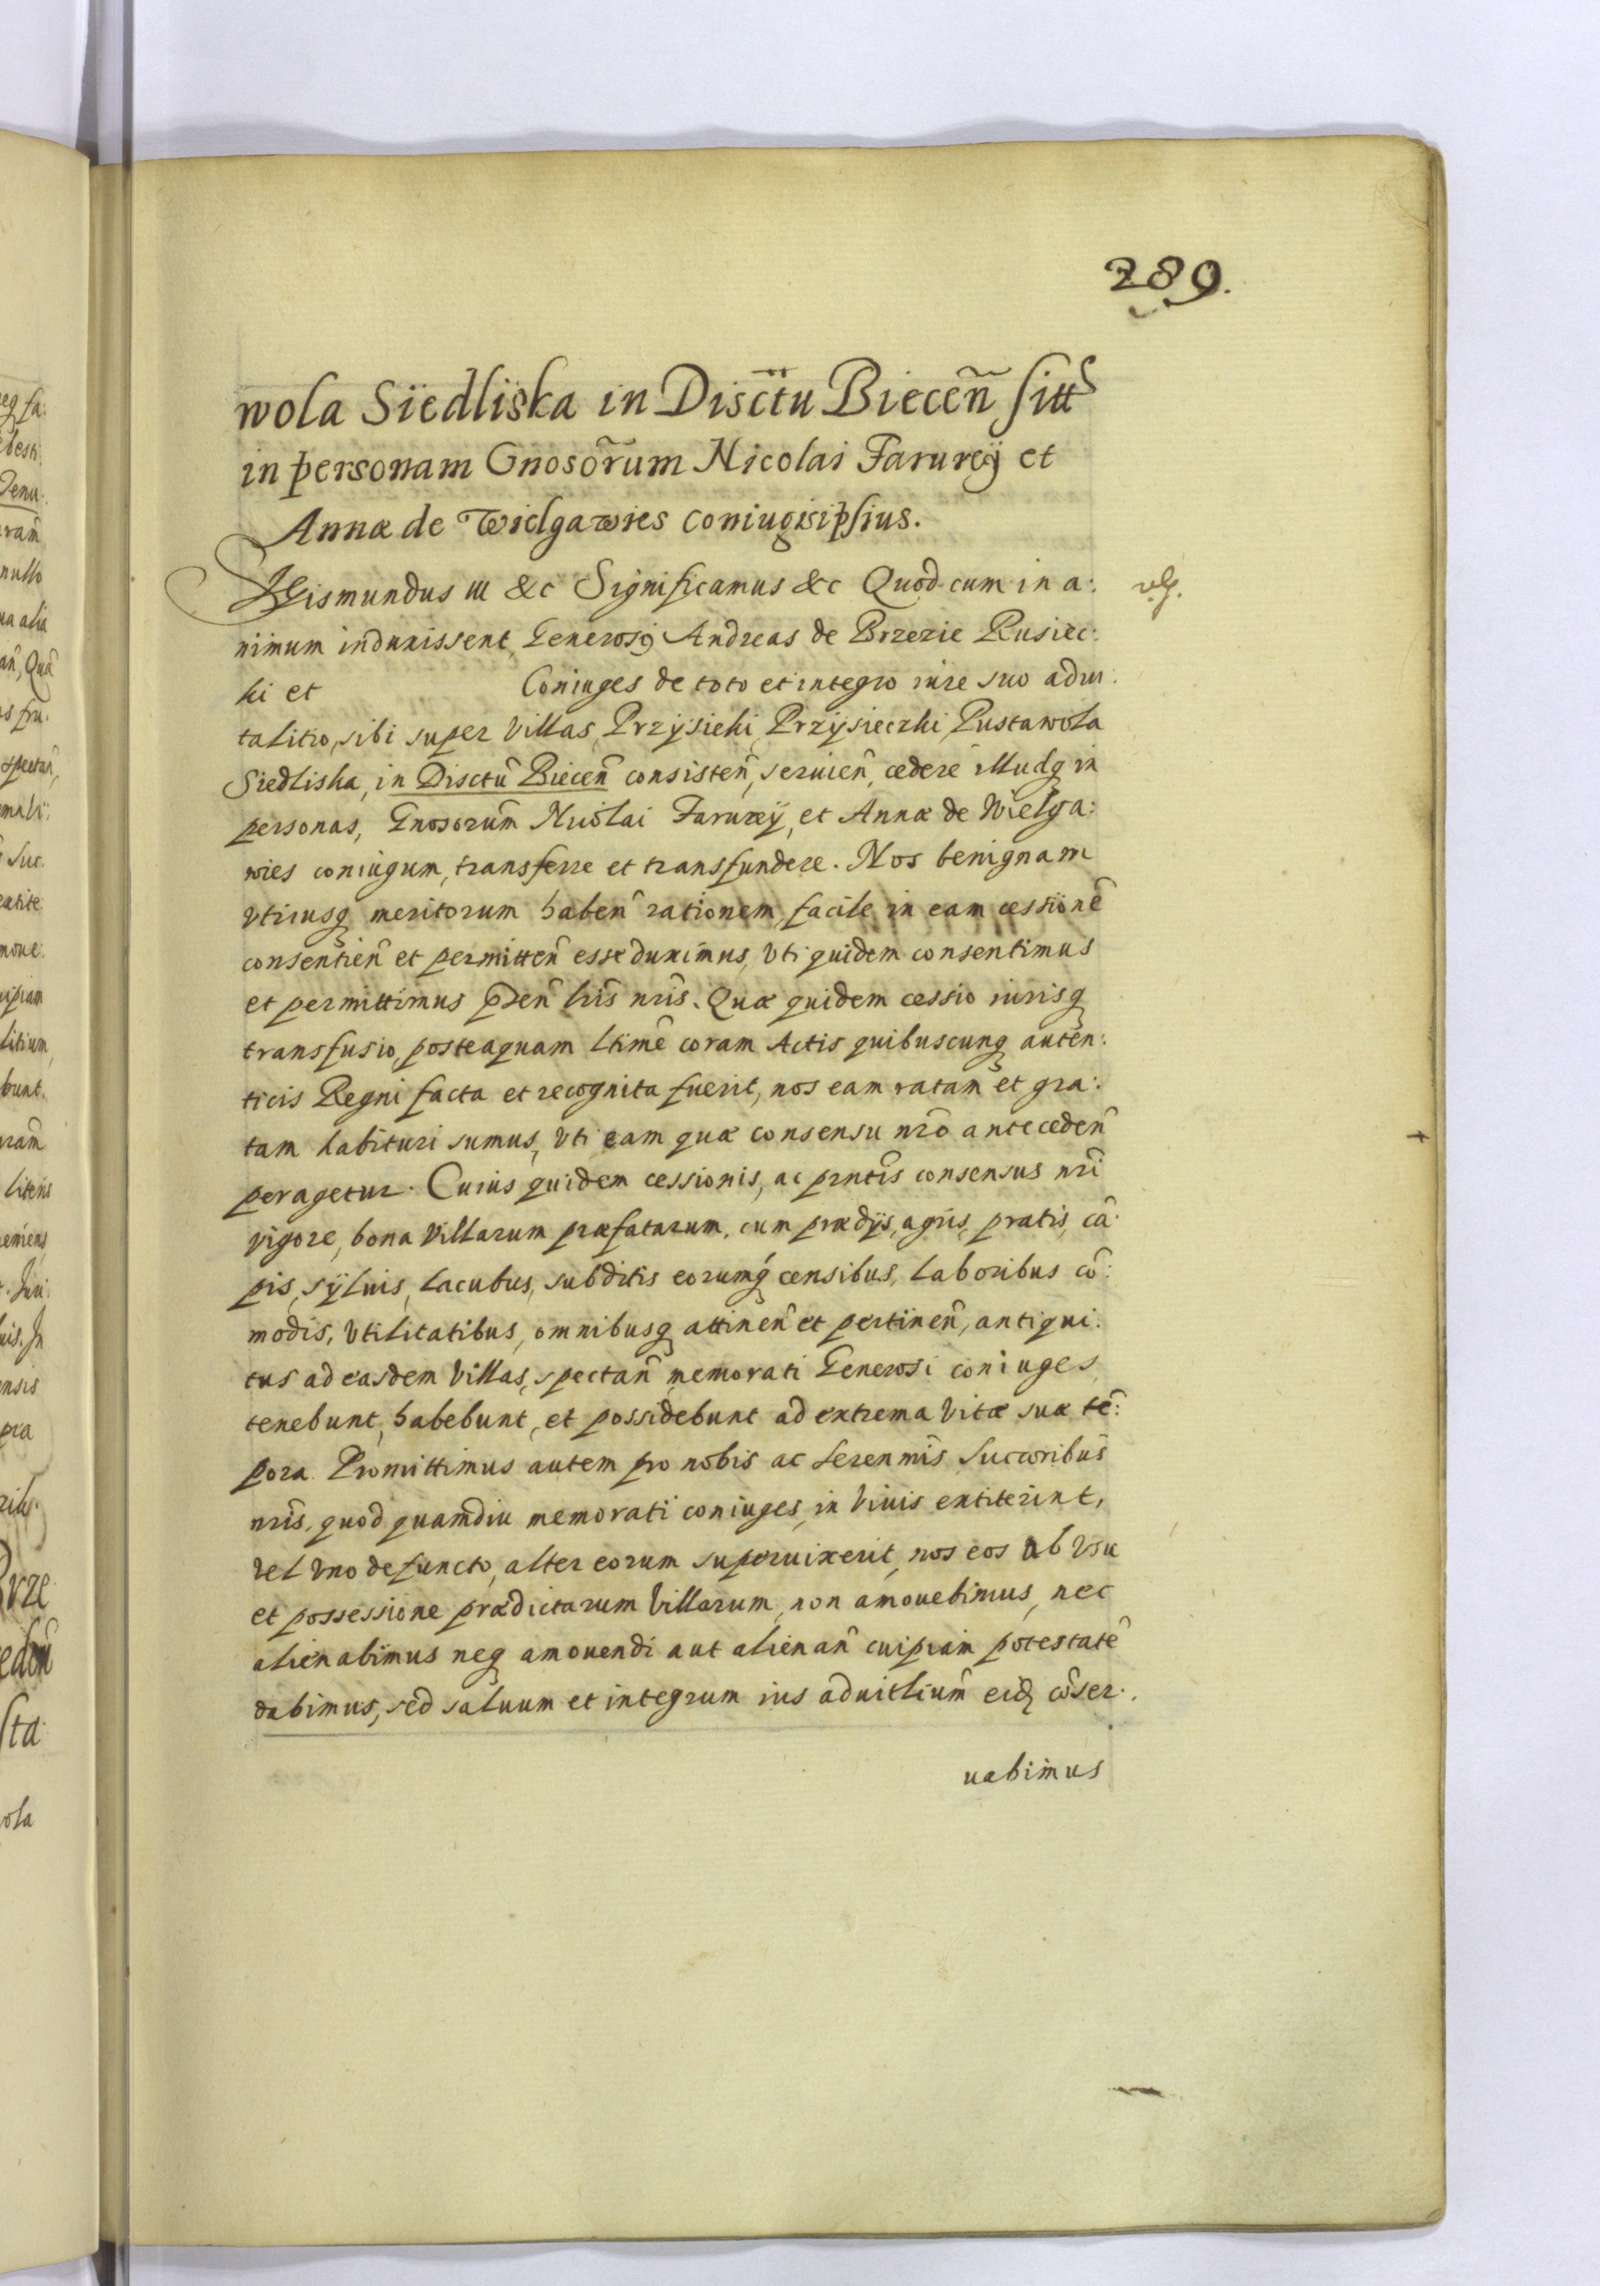 289.
wola Siedliska in Disctũ Biecen̄ sitt
in personam Gnosor̃um Nicolai Farureÿ et
Annæ de Wielgawies Coniugis ipsius.
Sigismundus III &c Significamus &c Quod cum in a:
nimum induxissent, Generosi Andreas de Brzezie Rusiec:
ki et Coniuges de toto et integro iure suo advi:
talitio, sibi super Villas Przÿsieki Przÿsieczki Pustawola
Siedliska, in Disctũ Biecen̄ consisten̄, seruien̄, cedere illudq in
personas, Gnosorum̄ Nicolai Farureÿ, et Annæ de Wielga:
wies coniugum, transferre et transfundere. Nos benignam
vtriusq meritorum haben̄ rationem, facile in eam cessionẽ
consentien̄ et permitten̄ esse duximus, Vti quidem consentimus
et permittimus p̃sen̄ lr̃is nr̃is. Quæ quidem cessio iurisq
transfusio, posteaquam ltimẽ coram Actis quibuscunq auten:
ticis Regni facta et recognita fuerit, nos eam ratam et gra:
tam habituri sumus, Vti eam quæ consensu nr̃o anteceden̄
peragetur. Cuius quidem cessionis, ac prñtis consensus nr̃i
vigore, bona Villarum præfatarum, cum prædÿs, agris, pratis, cã:
pis, sÿluis, lacubus, subditis eorumq́ censibus, laboribus cõ:
modis, Vtilitatibus, omnibusq attinen̄ et pertinen̄, antiqui:
tus ad easdem Villas, spectan̄ memorati Generosi coniuges
tenebunt, habebunt, et possidebunt ad extrema Vitæ suæ tẽ:
pora. Promittimus autem pro nobis ac Serenm̃is Succoribus̄
nr̃is, quod quamdiu memorati coniuges, in Viuis extiterint,
vel vno defuncto, alter eorum superuixerit, nos eos ab vsu
et possessione prædictarum Villarum, non amouebimus, nec
alienabimus neq amouendi aut alienan̄ cuipiam potestatẽ
dabimus, sed saluum et integrum ius aduitlium̄ eisd cõser:
uabimus